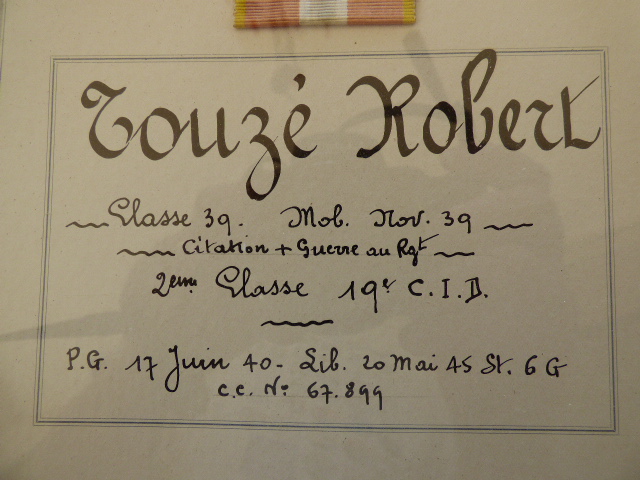 Touzé Robert
Classe 39. Mob. Nov. 39
Citation + Guerre au Rgt
2ème Classe 19e C.I.D.
P.G. 17 Juin 40 - Lib. 20 Mai 45 St. 6 G
C.C. No 67.899